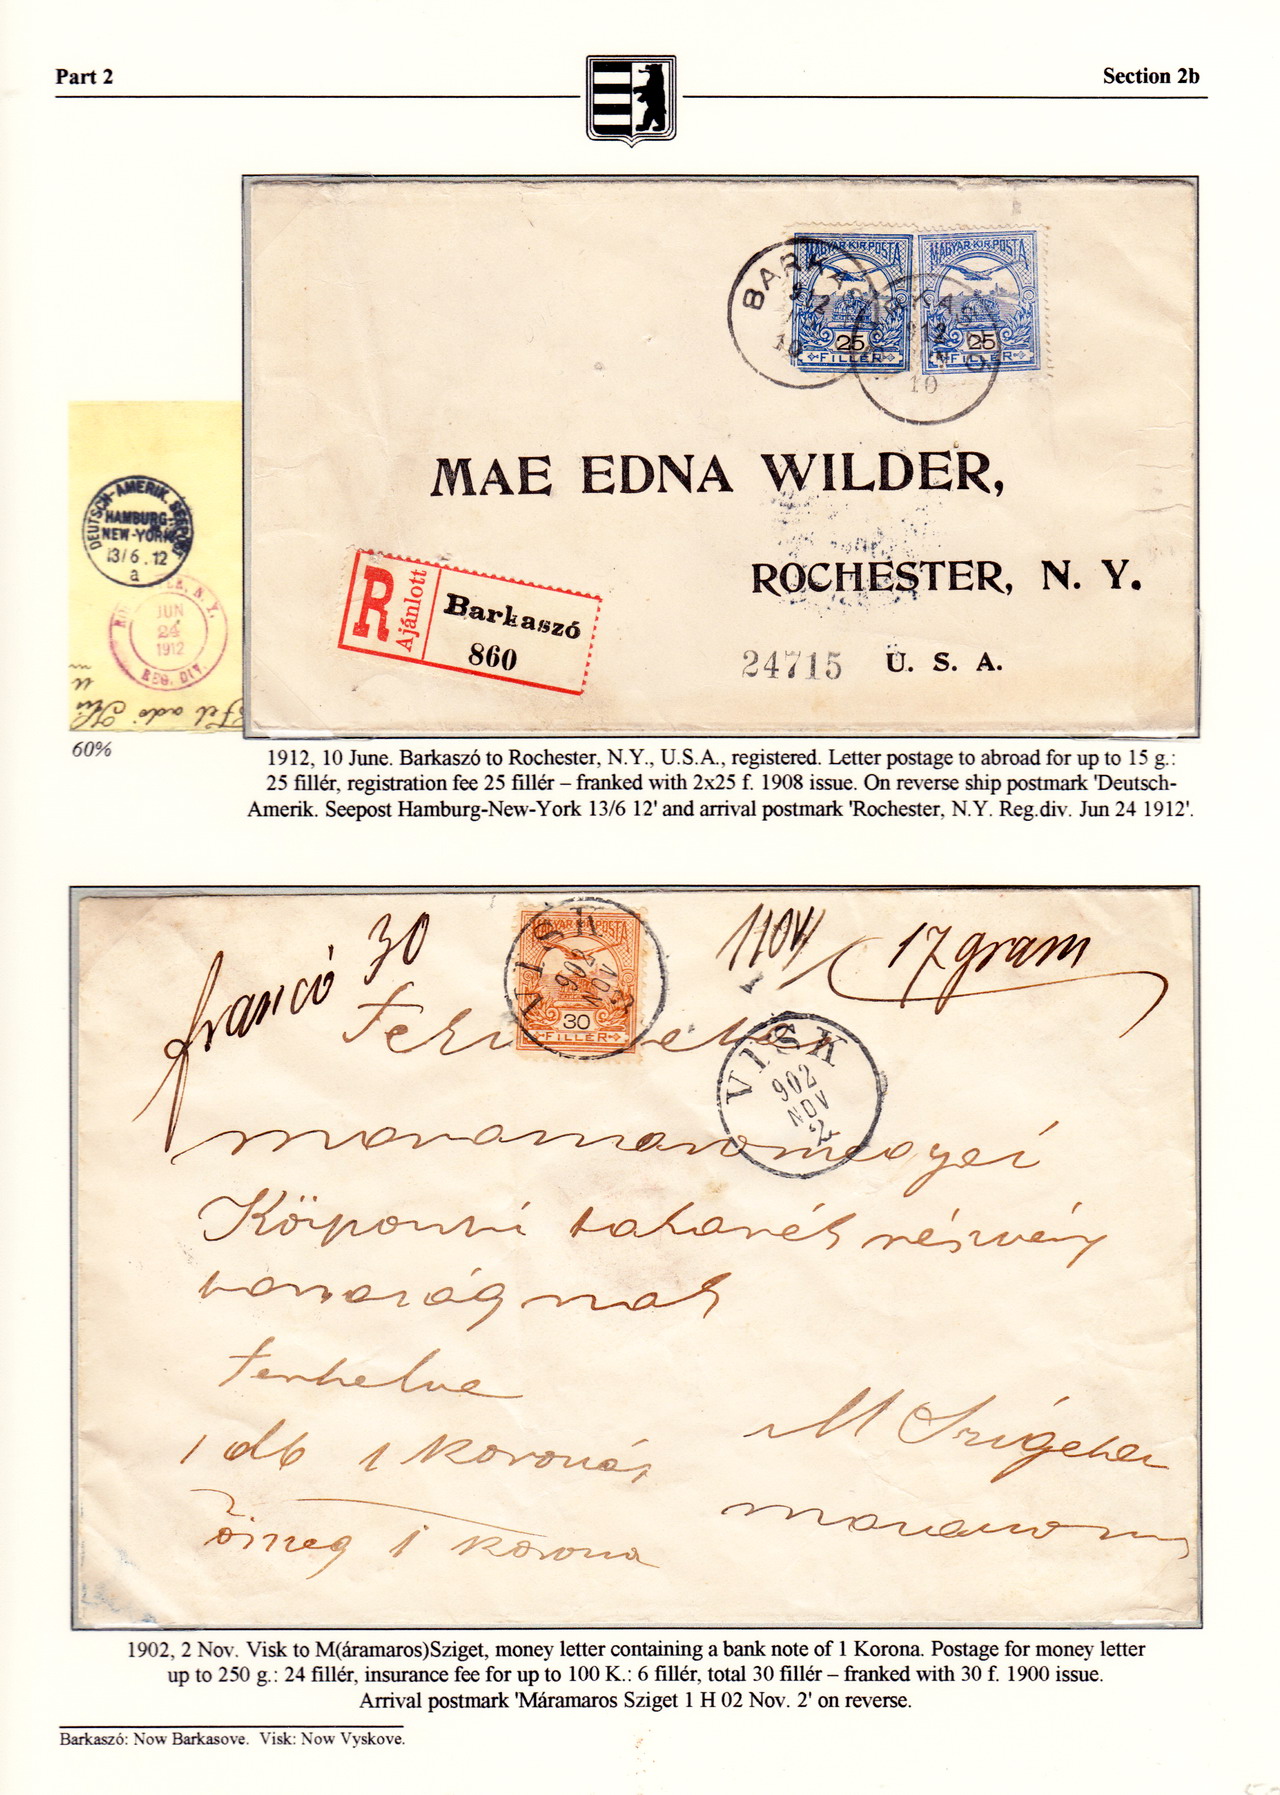 Part 2
Section 2b
MAGYAR·KIR·POSTA
25
FILLÉR
MAGYAR·KIR·POSTA
25
FILLÉR
BARKASZÓ
912
10
912
10
MAE EDNA WILDER,
ROCHESTER, N. Y.
U. S. A.
24715
R
Ajánlott
Barkaszó
860
DEUTSCH-AMERIK. SEEPOST
HAMBURG-
NEW-YORK
13/6.12
a
ROCHESTER, N. Y.
JUN
24
1912
REG. DIV.
60%
1912, 10 June. Barkaszó to Rochester, N.Y., U.S.A., registered. Letter postage to abroad for up to 15 g.:
25 fillér, registration fee 25 fillér – franked with 2x25 f. 1908 issue. On reverse ship postmark 'Deutsch-
Amerik. Seepost Hamburg-New-York 13/6 12' and arrival postmark 'Rochester, N.Y. Reg.div. Jun 24 1912'.
francó 30
MAGYAR·KIR·POSTA
30
FILLÉR
VISK
902
NOV
2
17 gram
VISK
902
NOV
2
maramarosmegyei
Központi takarék részvény
társaságnak
terhelve
1 db 1 koronás
összeg 1 korona
M Szigeten
1902, 2 Nov. Visk to M(áramaros)Sziget, money letter containing a bank note of 1 Korona. Postage for money letter
up to 250 g.: 24 fillér, insurance fee for up to 100 K.: 6 fillér, total 30 fillér – franked with 30 f. 1900 issue.
Arrival postmark 'Máramaros Sziget 1 H 02 Nov. 2' on reverse.
Barkaszó: Now Barkasove. Visk: Now Vyskove.